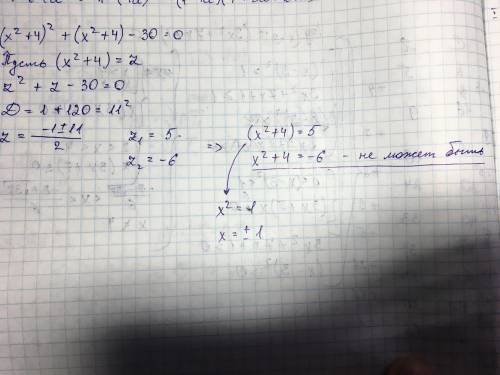 (x²+4)² + (x²+4) - 30 = 0
Пусть (x²+4) = z
z² + z - 30 = 0
D = 1 + 120 = 11²
z = (-1±11)/2   z₁ = 5   =>   (x²+4) = 5
z₂ = -6   x²+4 = -6 - не может быть
x² = 1
x = ± 1